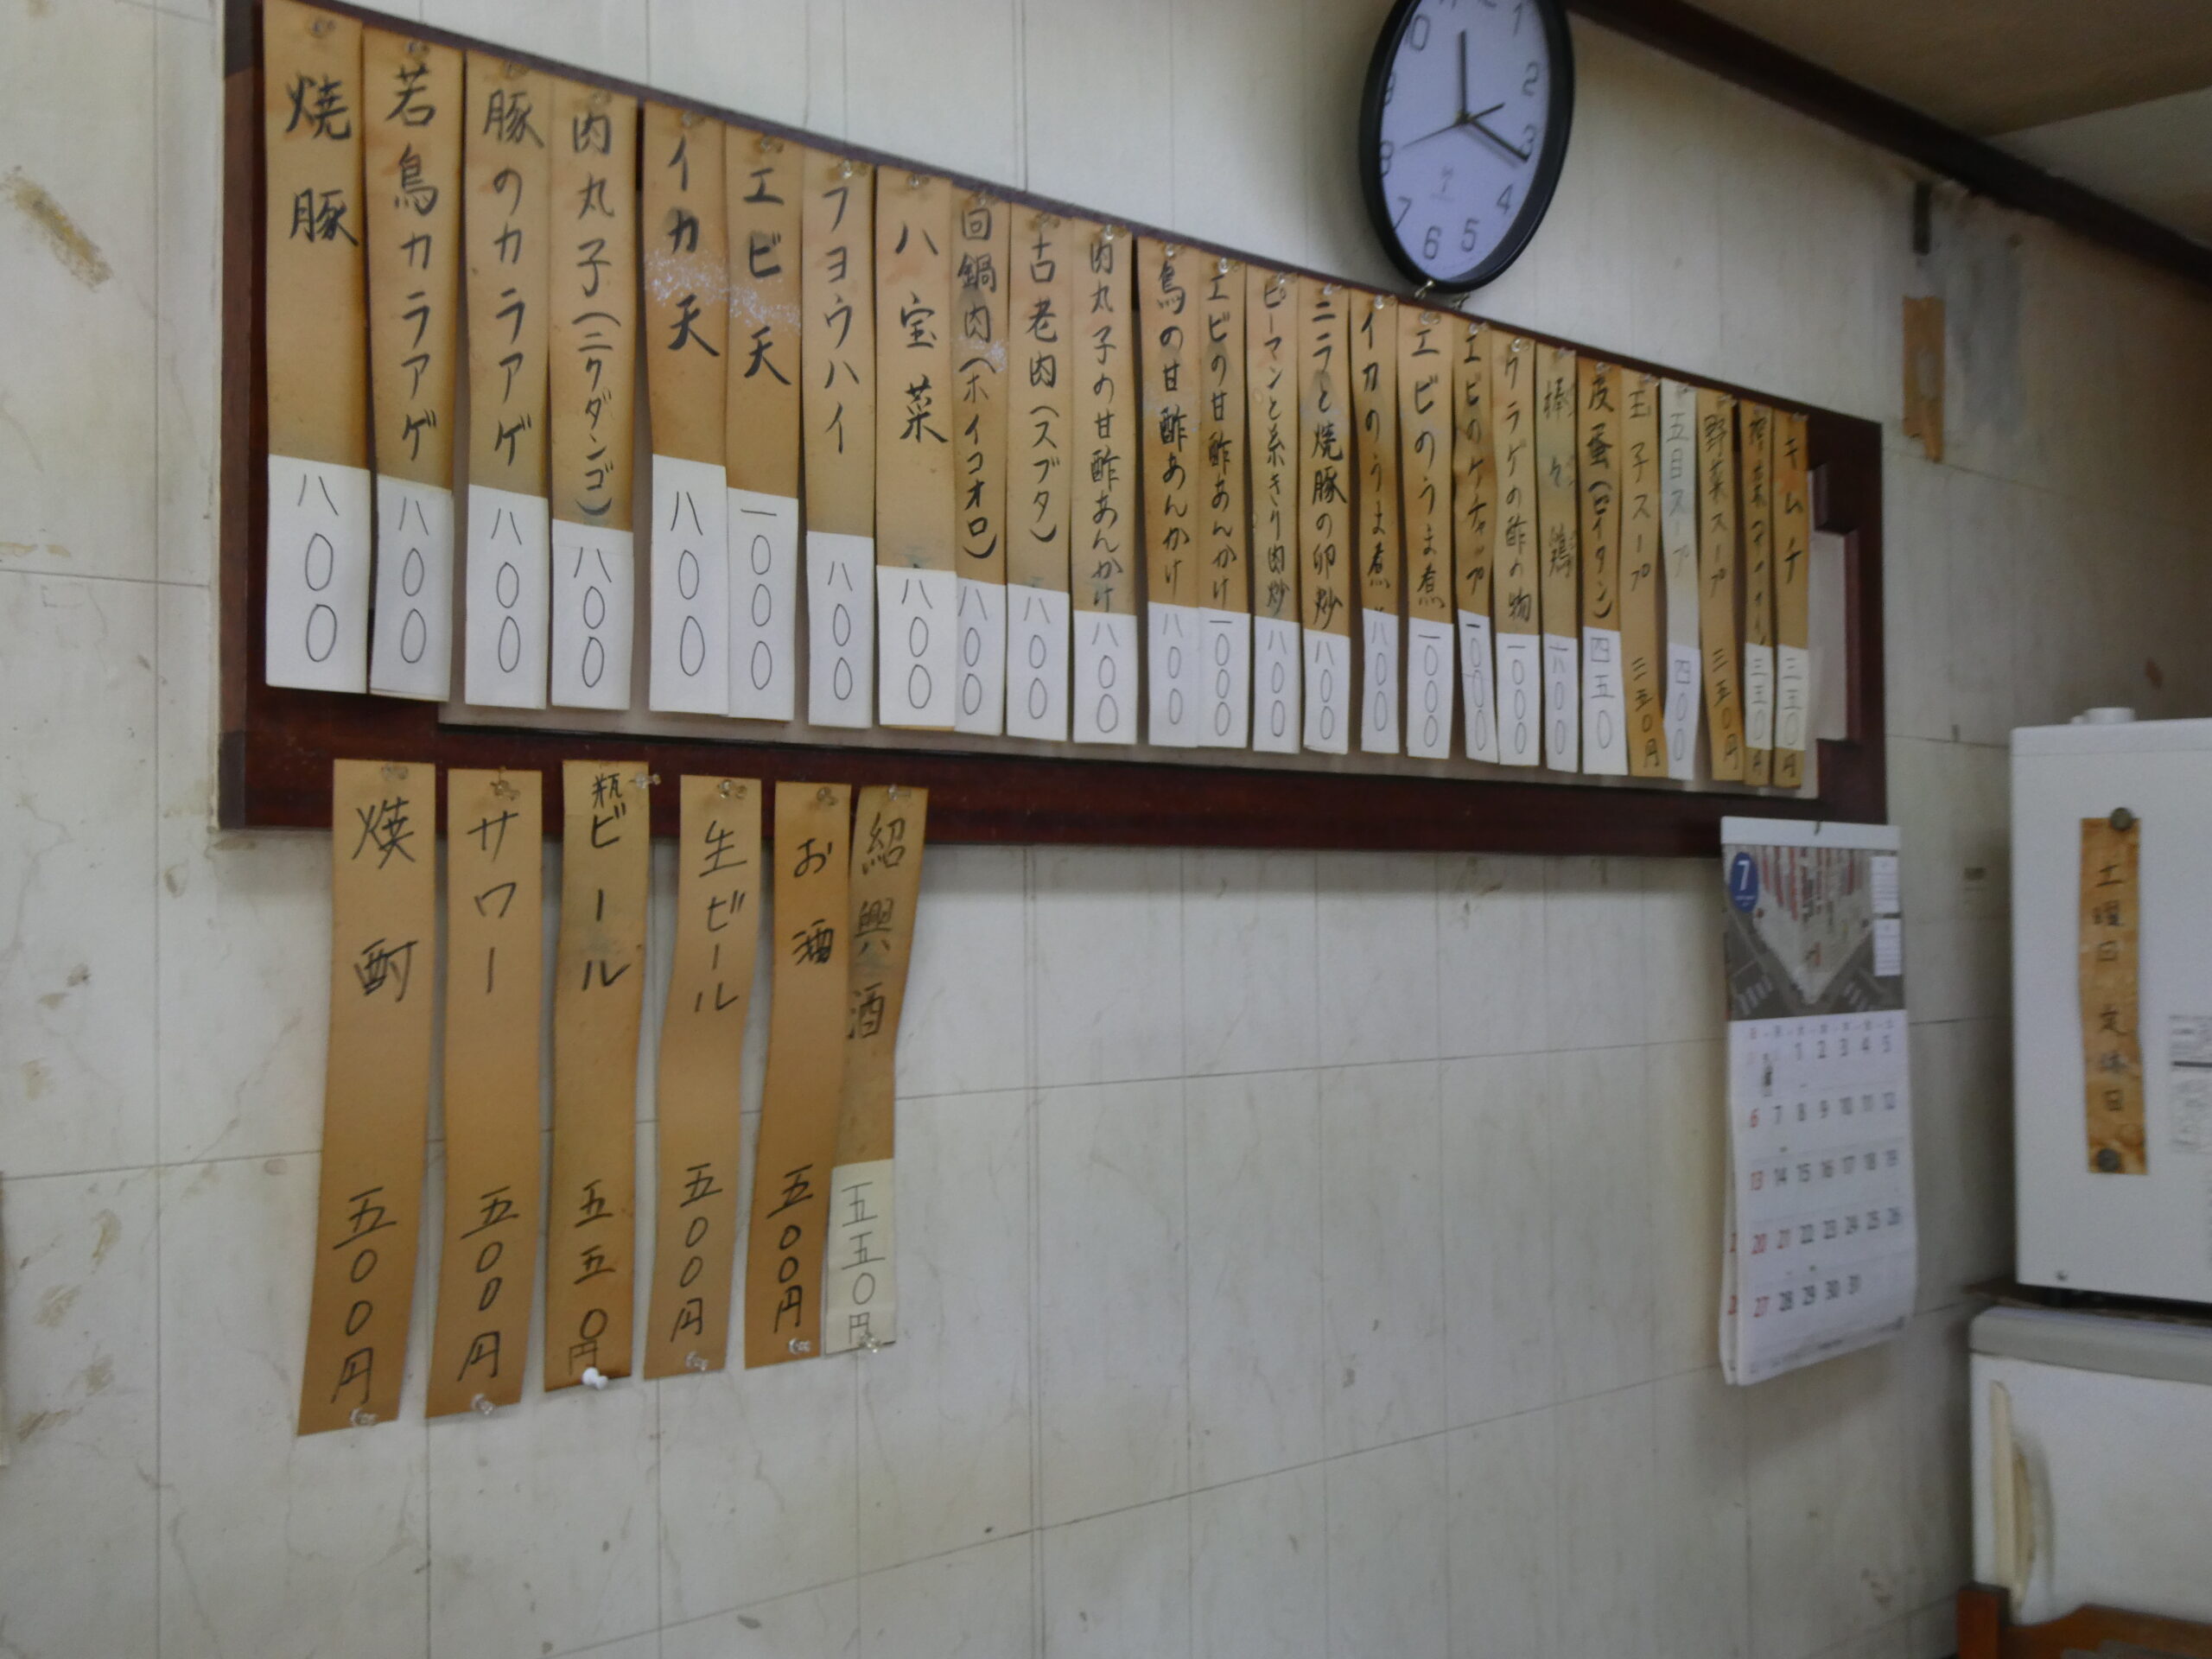 焼豚 八〇〇
若鳥カラアゲ 八〇〇
豚のカラアゲ 八〇〇
肉丸子(ニクダンゴ) 八〇〇
イカ天 八〇〇
エビ天 一〇〇〇
フヨウハイ 八〇〇
八宝菜 八〇〇
回鍋肉(ホイコオロ) 八〇〇
古老肉(スブタ) 八〇〇
肉丸子の甘酢あんかけ 八〇〇
鳥の甘酢あんかけ 八〇〇
エビの甘酢あんかけ 一〇〇〇
ピーマンと糸きり肉炒 八〇〇
ニラと焼豚の卵炒 八〇〇
イカのうま煮 八〇〇
エビのうま煮 一〇〇〇
エビのケチャップ 一〇〇〇
クラゲの酢の物 一〇〇〇
棒々鶏 八〇〇
皮蛋(ピイタン) 四五〇
玉子スープ 三五〇円
五目スープ 四〇〇
野菜スープ 三五〇円
三五〇円
キムチ 三五〇円
焼酎 五〇〇円
サワー 五〇〇円
瓶ビール 五五〇円
生ビール 五〇〇円
お酒 五〇〇円
紹興酒 五五〇円
10 1
9 2
8 3
7 6 5 4
7
1 2 3 4 5
6 7 8 9 10 11 12
13 14 15 16 17 18 19
20 21 22 23 24 25 26
27 28 29 30 31
土曜日 定休日